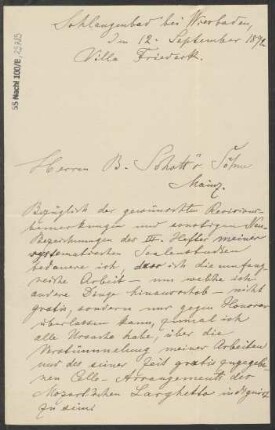 Schlangenbad bei Wiesbaden,
Im 12. September 1892
Villa Friedeck.
55 Nachl 100/B,
Herren B. Schott's Söhne
Mainz.
Bezüglich der gewünschten Revisions-
bemerkungen und sonstigen Neu-
Bezeichnungen der III. Hefte meiner
systematischen Scalenstudien
bedauere ich, dass ich die umfang-
reiche Arbeit – um welche ich
andere Dinge hinausschob – nicht
gratis, sondern nur gegen Honorar
überlassen kann, zumal ich
alle Ursache habe, über die
Verstümmelung meiner Arbeiten
und des seiner Zeit gratis zugegebenen
Cello-Arrangements des
Mozart'schen Larghetto indignirt
zu sein!